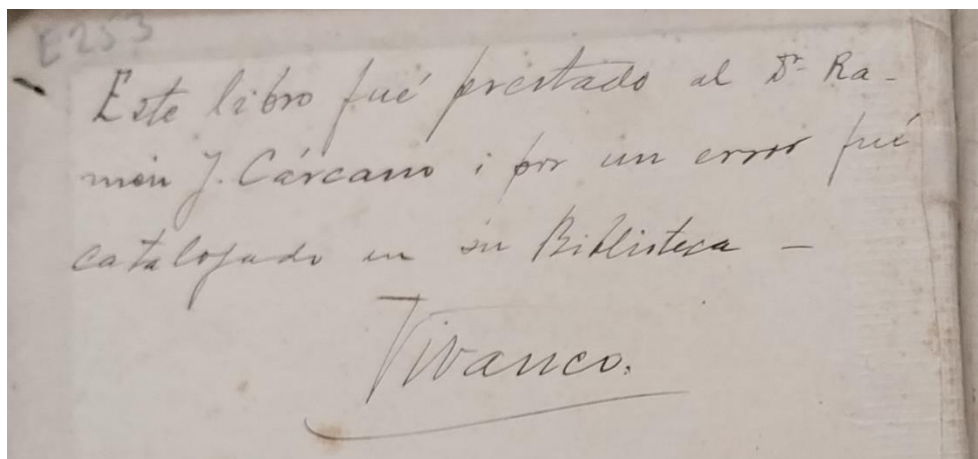 E253
Este libro fué prestado al Dr. Ra-
món J. Cárcano i por un error fué
catalogado en su Biblioteca -
Vivanco.